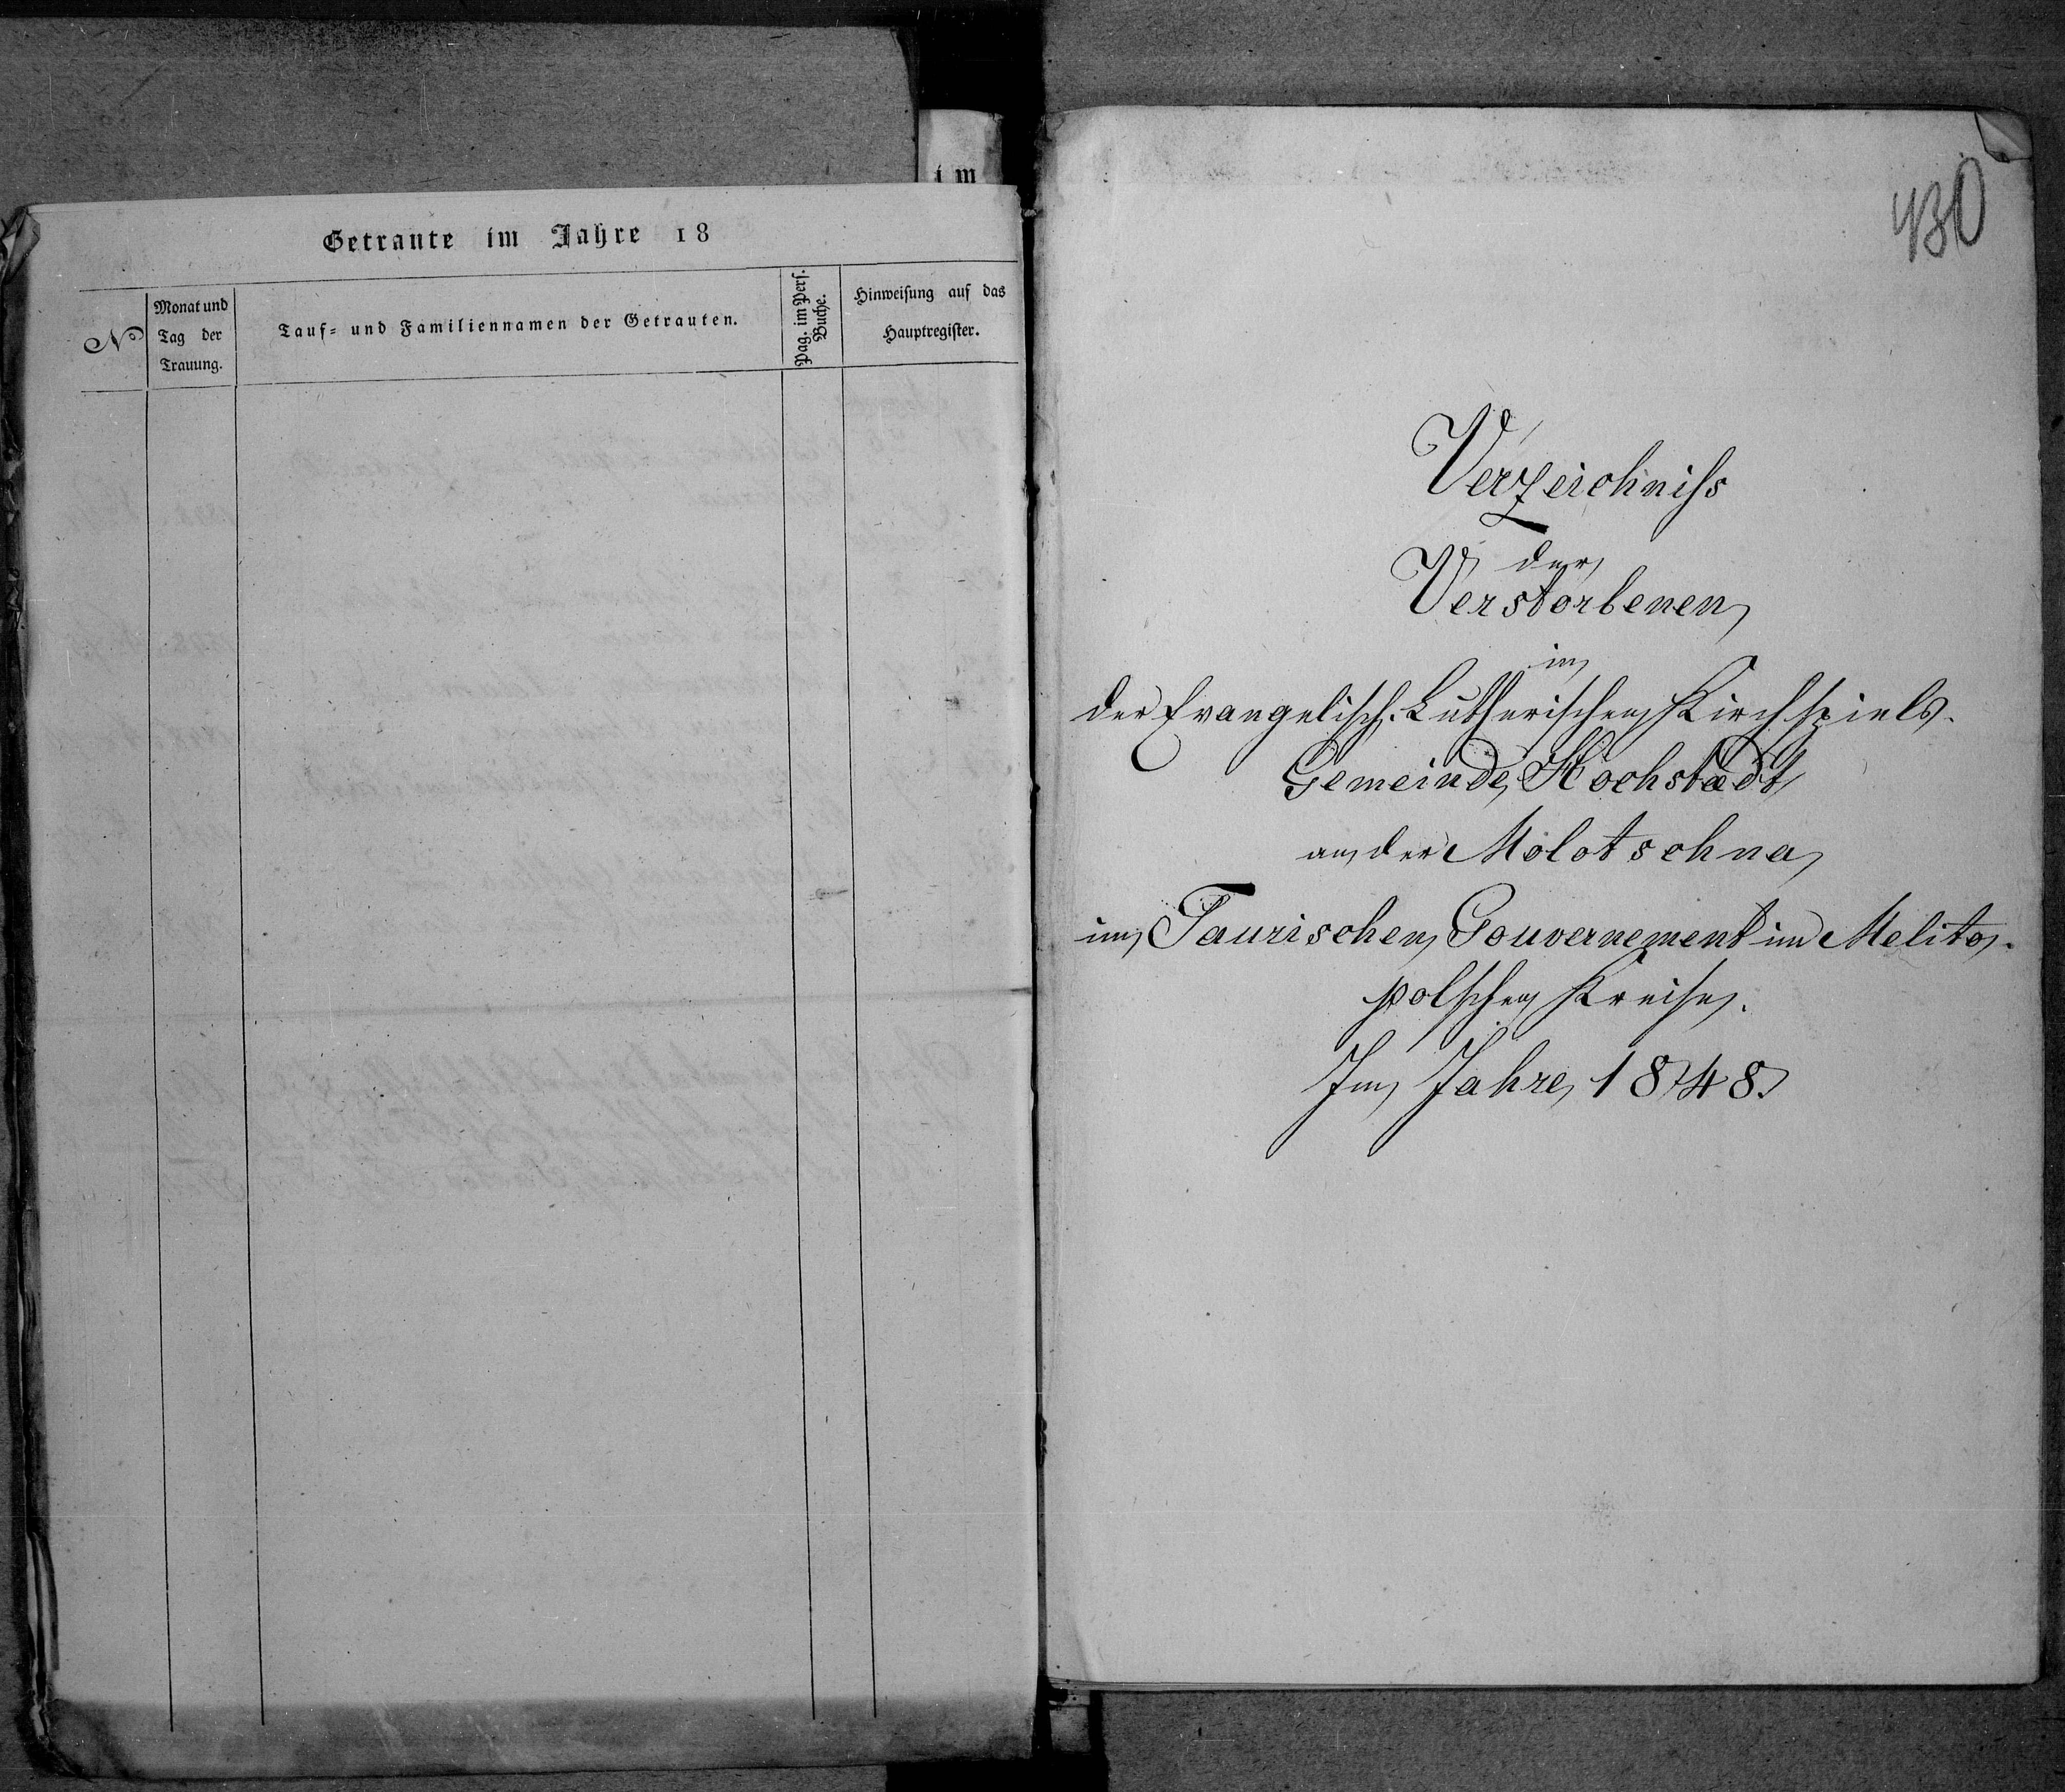 im
Getraute im Jahre 18
No
Monat und
Tag der
Trauung.
Tauf- und Familiennamen der Getrauten.
Pag. im Pers.
Buche.
Hinweisung auf das
Hauptregister.
430
Verzeichniss
der
Verstorbenen
in
der Evangelisch-Lutherischen Kirchspiels-
Gemeinde Hochstædt
an der Molotschna
im Taurischen Gouvernement im Melito-
polschen Kreise.
Im Jahre 1848.